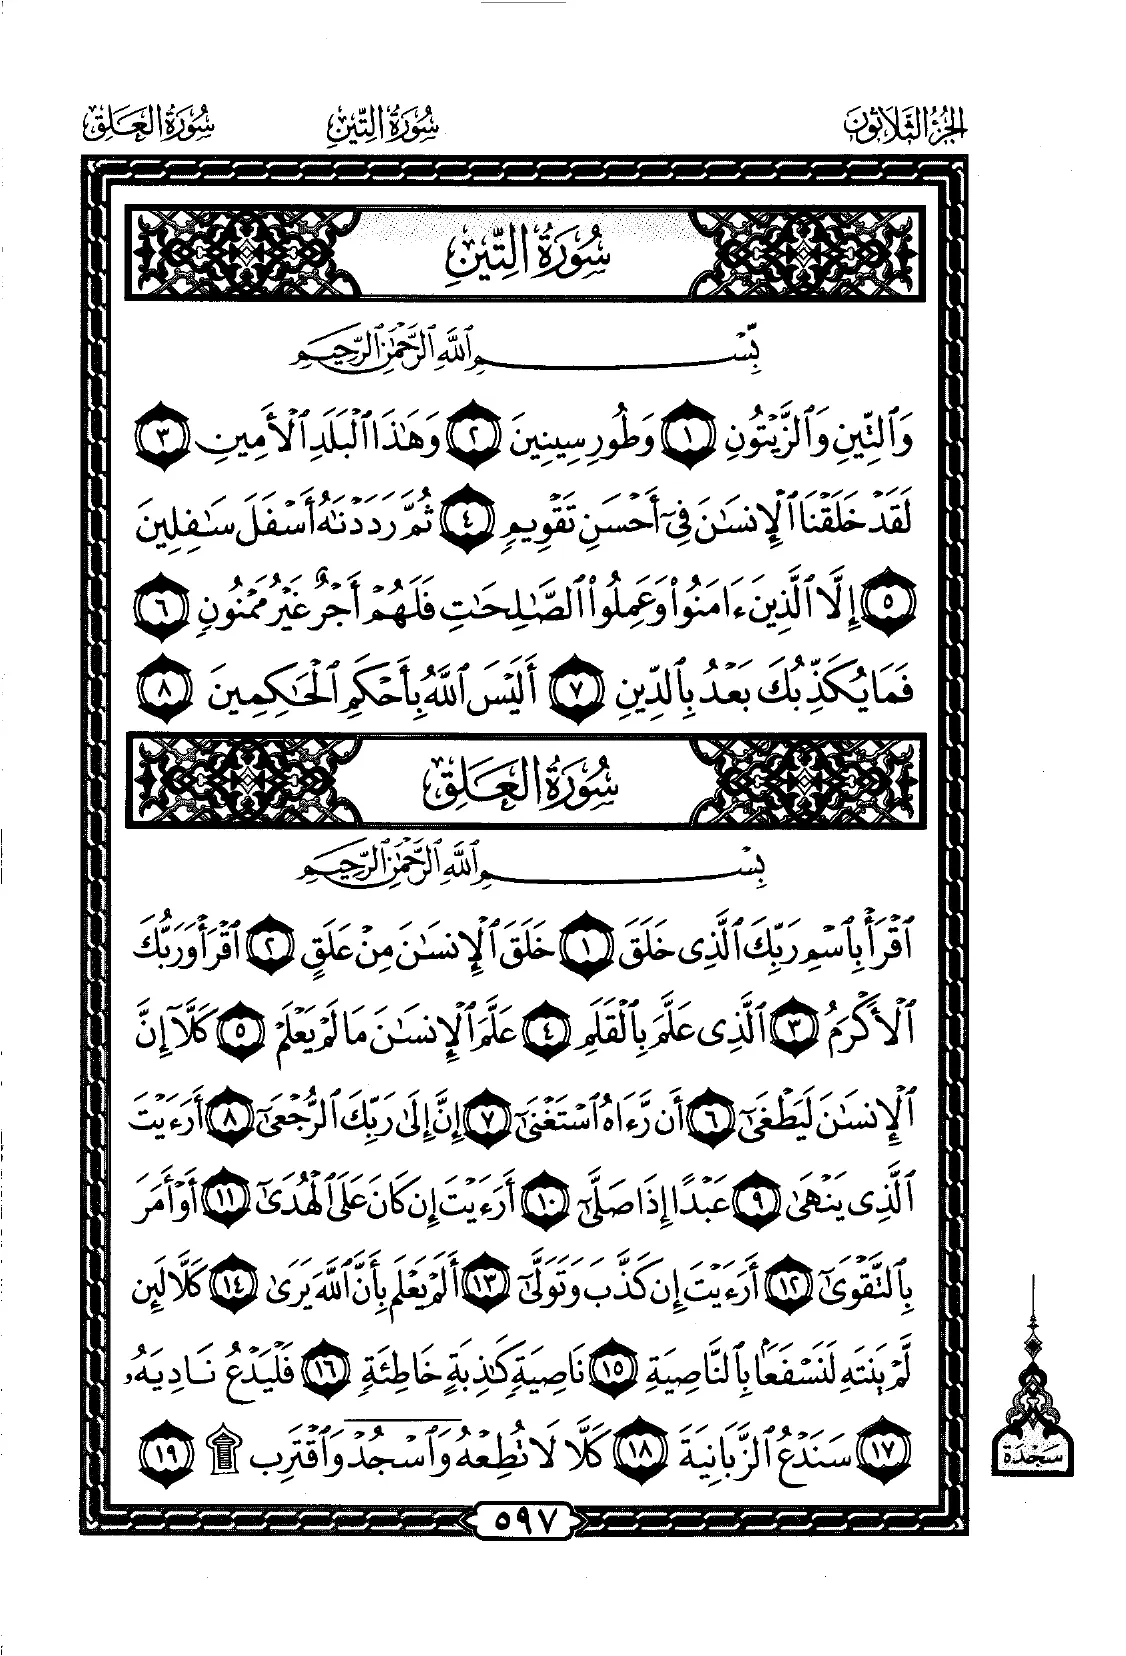 الجزء الثلاثون سُورَةُ التِّينِ سُورَةُ العَلَقِ
سُورَةُ التِّينِ
بِّسْمِ ٱللَّهِ ٱلرَّحْمَٰنِ ٱلرَّحِيمِ
وَٱلتِّينِ وَٱلزَّيْتُونِ ١ وَطُورِ سِينِينَ ٢ وَهَٰذَا ٱلْبَلَدِ ٱلْأَمِينِ ٣
لَقَدْ خَلَقْنَا ٱلْإِنسَٰنَ فِىٓ أَحْسَنِ تَقْوِيمٍ ٤ ثُمَّ رَدَدْنَٰهُ أَسْفَلَ سَٰفِلِينَ
٥ إِلَّا ٱلَّذِينَ ءَامَنُوا۟ وَعَمِلُوا۟ ٱلصَّٰلِحَٰتِ فَلَهُمْ أَجْرٌ غَيْرُ مَمْنُونٍ ٦
فَمَا يُكَذِّبُكَ بَعْدُ بِٱلدِّينِ ٧ أَلَيْسَ ٱللَّهُ بِأَحْكَمِ ٱلْحَٰكِمِينَ ٨
سُورَةُ العَلَقِ
بِسْمِ ٱللَّهِ ٱلرَّحْمَٰنِ ٱلرَّحِيمِ
ٱقْرَأْ بِٱسْمِ رَبِّكَ ٱلَّذِى خَلَقَ ١ خَلَقَ ٱلْإِنسَٰنَ مِنْ عَلَقٍ ٢ ٱقْرَأْ وَرَبُّكَ
ٱلْأَكْرَمُ ٣ ٱلَّذِى عَلَّمَ بِٱلْقَلَمِ ٤ عَلَّمَ ٱلْإِنسَٰنَ مَا لَمْ يَعْلَمْ ٥ كَلَّآ إِنَّ
ٱلْإِنسَٰنَ لَيَطْغَىٰٓ ٦ أَن رَّءَاهُ ٱسْتَغْنَىٰٓ ٧ إِنَّ إِلَىٰ رَبِّكَ ٱلرُّجْعَىٰٓ ٨ أَرَءَيْتَ
ٱلَّذِى يَنْهَىٰ ٩ عَبْدًا إِذَا صَلَّىٰٓ ١٠ أَرَءَيْتَ إِن كَانَ عَلَى ٱلْهُدَىٰٓ ١١ أَوْ أَمَرَ
بِٱلتَّقْوَىٰٓ ١٢ أَرَءَيْتَ إِن كَذَّبَ وَتَوَلَّىٰٓ ١٣ أَلَمْ يَعْلَم بِأَنَّ ٱللَّهَ يَرَىٰ ١٤ كَلَّا لَئِن
لَّمْ يَنتَهِ لَنَسْفَعًۢا بِٱلنَّاصِيَةِ ١٥ نَاصِيَةٍ كَٰذِبَةٍ خَاطِئَةٍ ١٦ فَلْيَدْعُ نَادِيَهُۥ
١٧ سَنَدْعُ ٱلزَّبَانِيَةَ ١٨ كَلَّا لَا تُطِعْهُ وَٱسْجُدْ وَٱقْتَرِب ۩ ١٩
سَجْدَة
٥٩٧